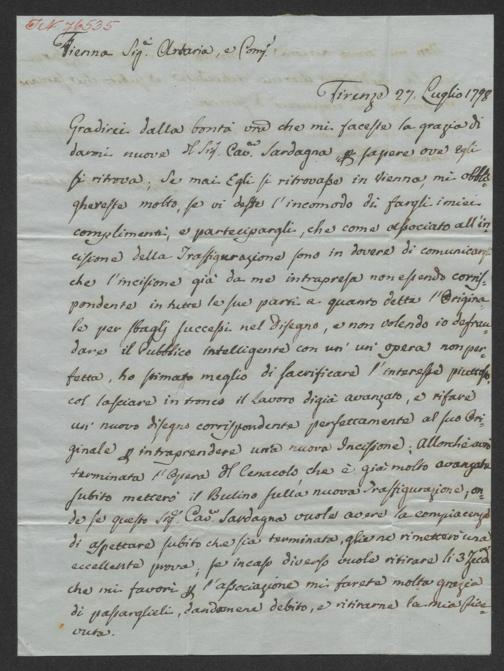 I.N. 76535
Vienna Sig.ri Artaria, e Comp.
Firenze 27. Luglio 1798
Gradirei dalla bontà vra che mi faceste la grazia di
darmi nuove del Sig. Cav.e Sardagna per sapere ove Egli
si ritrova; Se mai Egli si ritrovasse in Vienna, mi obbli-
ghereste molto, se vi deste l'incomodo di fargli i miei
complimenti, e partecipargli, che come associato all'in-
cisione della Trasfigurazione sono in dovere di comunicargli
che l'incisione già da me intrapresa non essendo corris-
pondente in tutte le sue parti a quanto detta l'Origina-
le per sbagli successi nel Disegno, e non volendo io defrau-
dare il Pubblico intelligente con un' un' opera non per-
fetta, ho stimato meglio di sacrificare l'interesse piuttosto
col lasciare in tronco il Lavoro digià avanzato, e rifare
un' nuovo disegno corrispondente perfettamente al suo Ori-
ginale per intraprendere una nuova Incisione; Allorchè avrò
terminata l'Opera del Cenacolo che è già molto avanzata
subito metterò il Bulino sulla nuova Trasfigurazione, on-
de se questo Sig. Cav.e Sardagna vuole avere la compiacenza
di aspettare subito che sia terminata, gliene rimetterò una
eccellente prova; se in caso diverso vuole ritirare li 3 Zecch.
che mi favorì per l'associazione mi farete molta grazia
di passarglieli, dandomene debito, e ritirarne la mia Rice-
vuta.